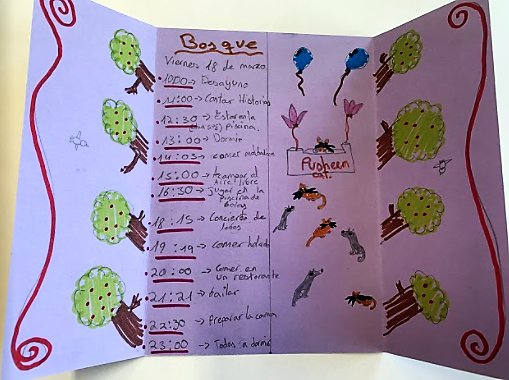 Bosque
Viernes, 18 de marzo
10:00 → Desayuno
11:00 → Contar Historias
12:30 → Estar en la
Piscina.
13:00 → Dormir
14:03 → comer
15:00 → Acampar al
Aire libre
16:30 → Jugar en la
piscina de
bolas
18:15 → Concierto de
lobos
19:19 → comer helado
20:00 → Comer en
un restorante
21:21 → bailar
22:30 → Preparar la cama
23:00 → Todos a dormir
Pusheen
cat.